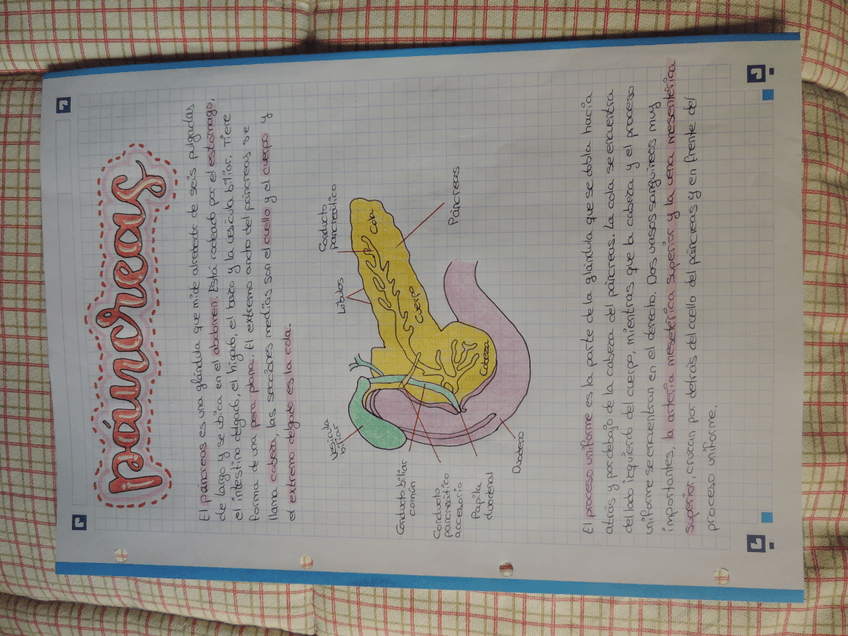 páncreas
El páncreas es una glándula que mide alrededor de seis pulgadas
de largo y se ubica en el abdomen. Está rodeado por el estómago,
el intestino delgado, el hígado, el bazo y la vesícula biliar. Tiene
forma de una pera plana. El extremo ancho del páncreas se
llama cabeza, las secciones medias son el cuello y el cuerpo y
el extremo delgado es la cola.
Conducto
pancreático
Lóbulos
Vesícula
biliar
Cola
Cuerpo
Cabeza
Páncreas
Conducto biliar
común
Conducto
pancreático
accesorio
Papila
duodenal
Duodeno
El proceso uniforme es la parte de la glándula que se dobla hacia
atrás y por debajo de la cabeza del páncreas. La cola se encuentra
del lado izquierdo del cuerpo, mientras que la cabeza y el proceso
uniforme se encuentran en el derecho. Dos vasos sanguíneos muy
importantes, la arteria mesentérica superior y la vena mesentérica
superior, cruzan por detrás del cuello del páncreas y en frente del
proceso uniforme.